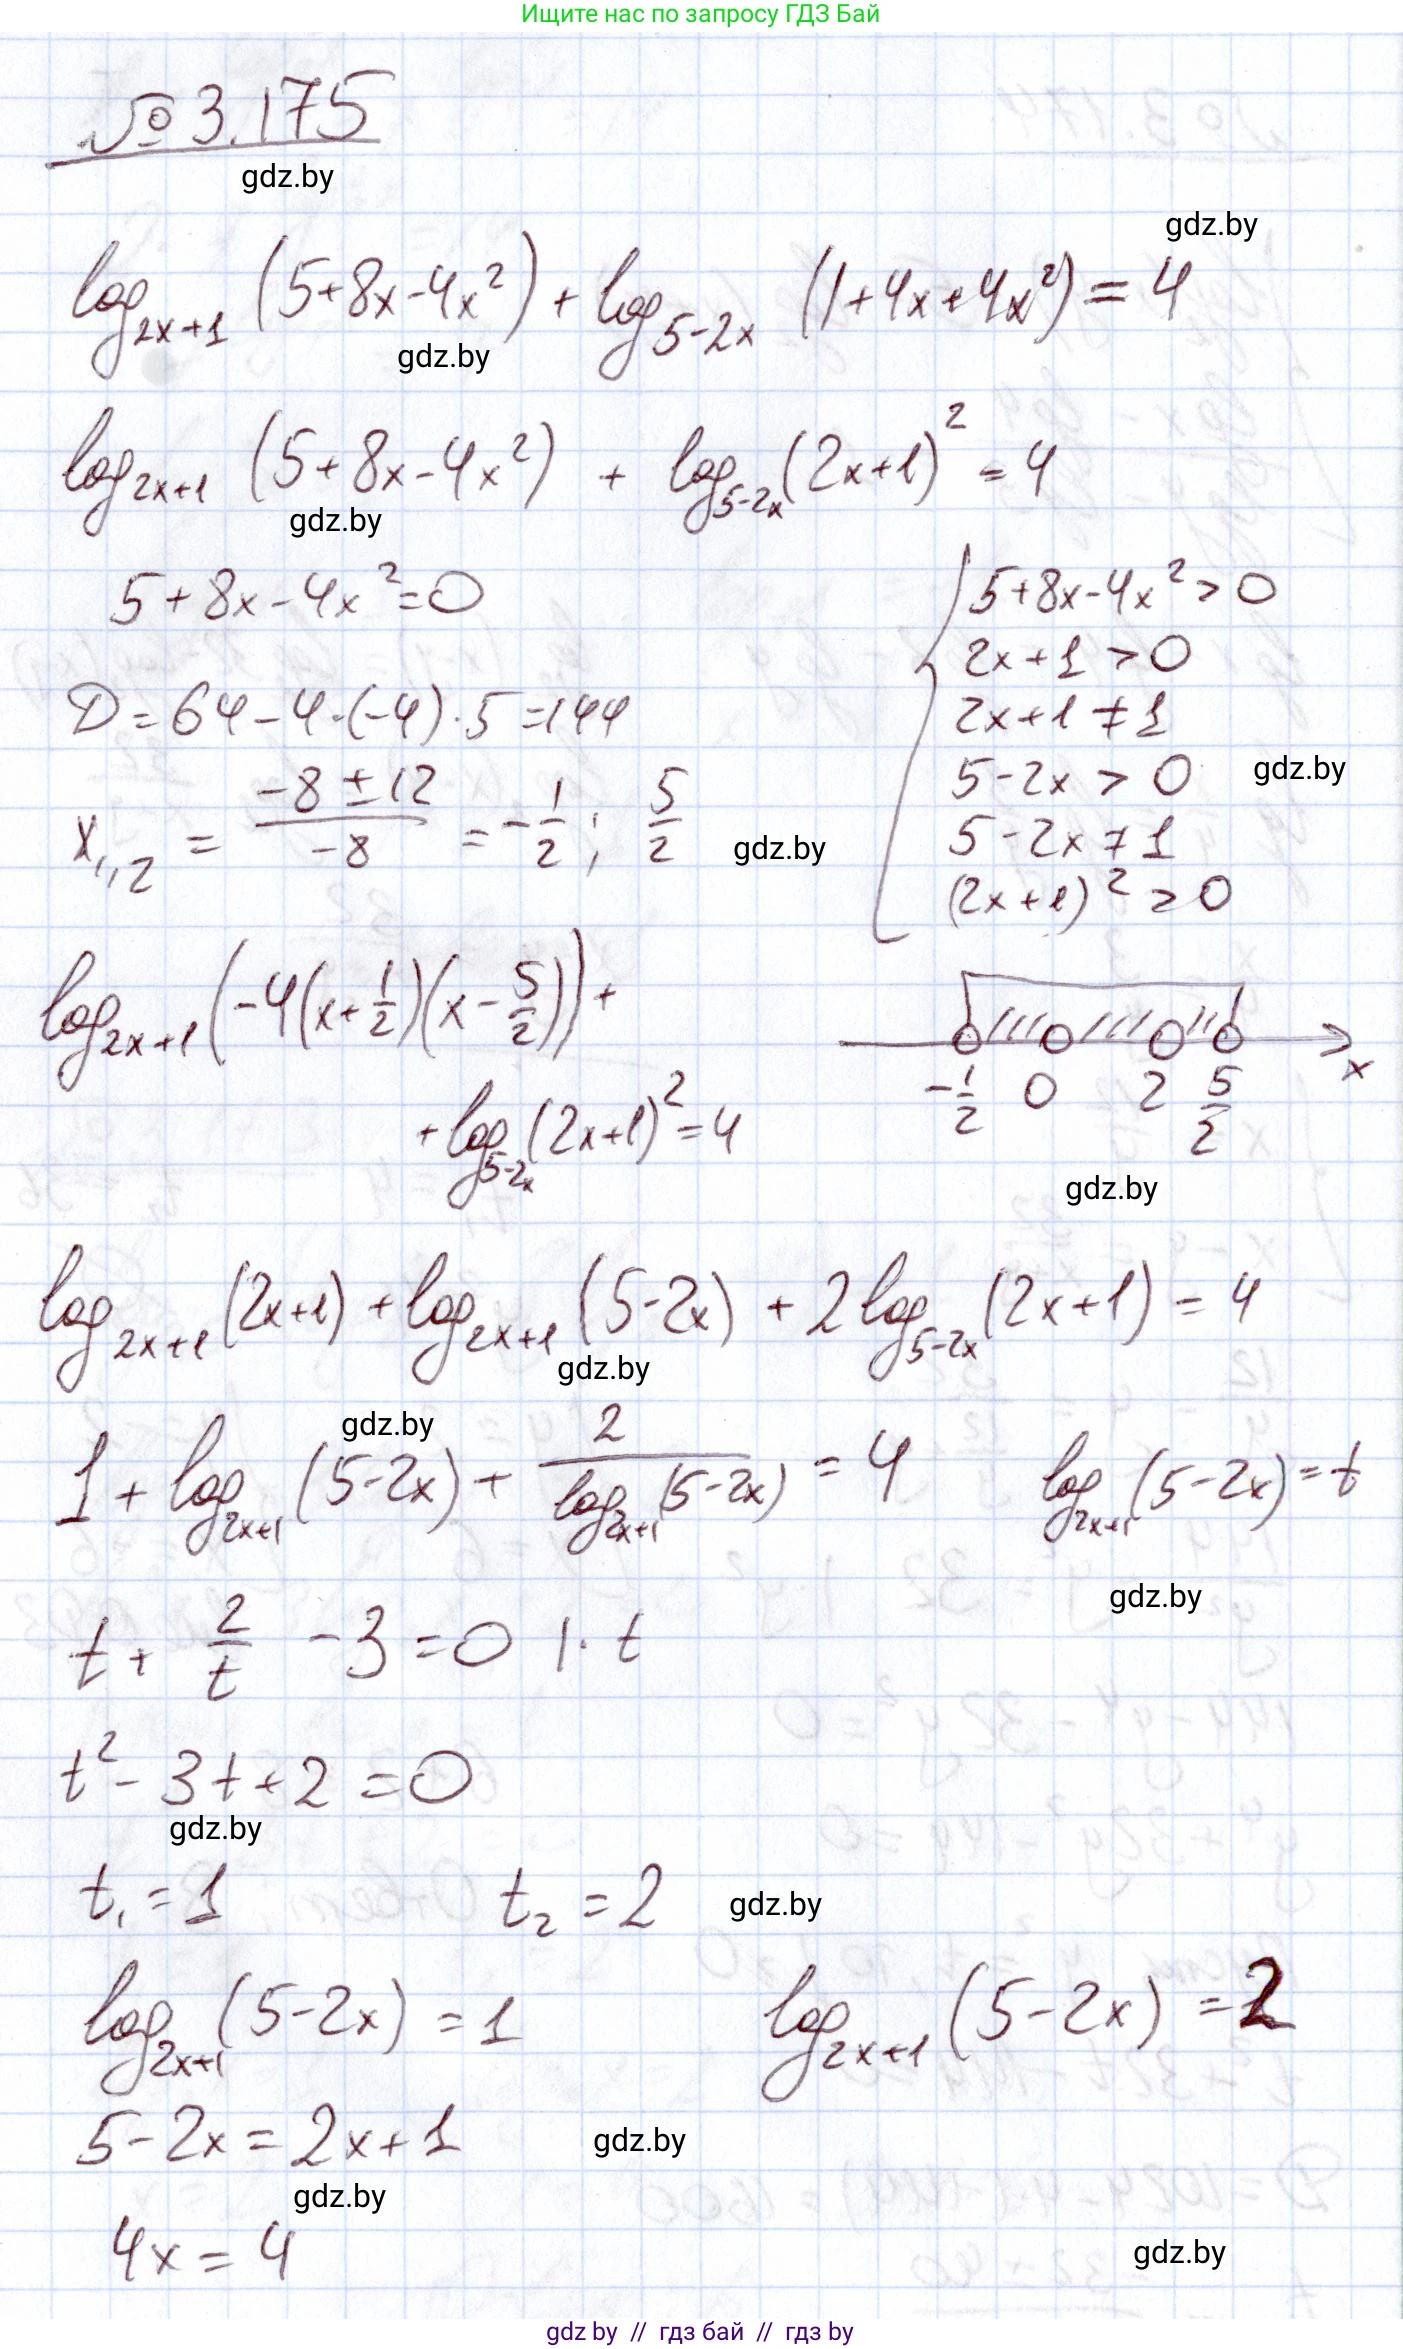 Ищите нас по запросу ГДЗ Бай
№ 3.175
gdz.by
gdz.by
log₂ₓ₊₁ (5+8x-4x²) + log₅₋₂ₓ (1+4x+4x²) = 4
gdz.by
log₂ₓ₊₁ (5+8x-4x²) + log₅₋₂ₓ (2x+1)² = 4
gdz.by
5+8x-4x²=0
D = 64-4·(-4)·5=144
x₁,₂ = (-8±12)/(-8) = -1/2; 5/2
gdz.by
5+8x-4x²>0
2x+1 >0
2x+1 ≠1
5-2x > 0
gdz.by
5-2x ≠ 1
(2x+1)²>0
log₂ₓ₊₁ (-4(x+1/2)(x-5/2)) +
+ log₅₋₂ₓ (2x+1)² = 4
-1/2 0 2 5/2 x
gdz.by
log₂ₓ₊₁ (2x+1) + log₂ₓ₊₁ (5-2x) + 2log₅₋₂ₓ (2x+1) = 4
gdz.by
gdz.by
1 + log₂ₓ₊₁ (5-2x) + 2/(log₂ₓ₊₁ (5-2x)) = 4 log₂ₓ₊₁ (5-2x) = t
gdz.by
t + 2/t - 3 = 0 |· t
t² - 3t + 2 = 0
gdz.by
t₁ = 1 t₂ = 2
gdz.by
log₂ₓ₊₁ (5-2x) = 1 log₂ₓ₊₁ (5-2x) = 2
5-2x = 2x+1
gdz.by
gdz.by
4x = 4
gdz.by
gdz by // гдз бай // гдз by